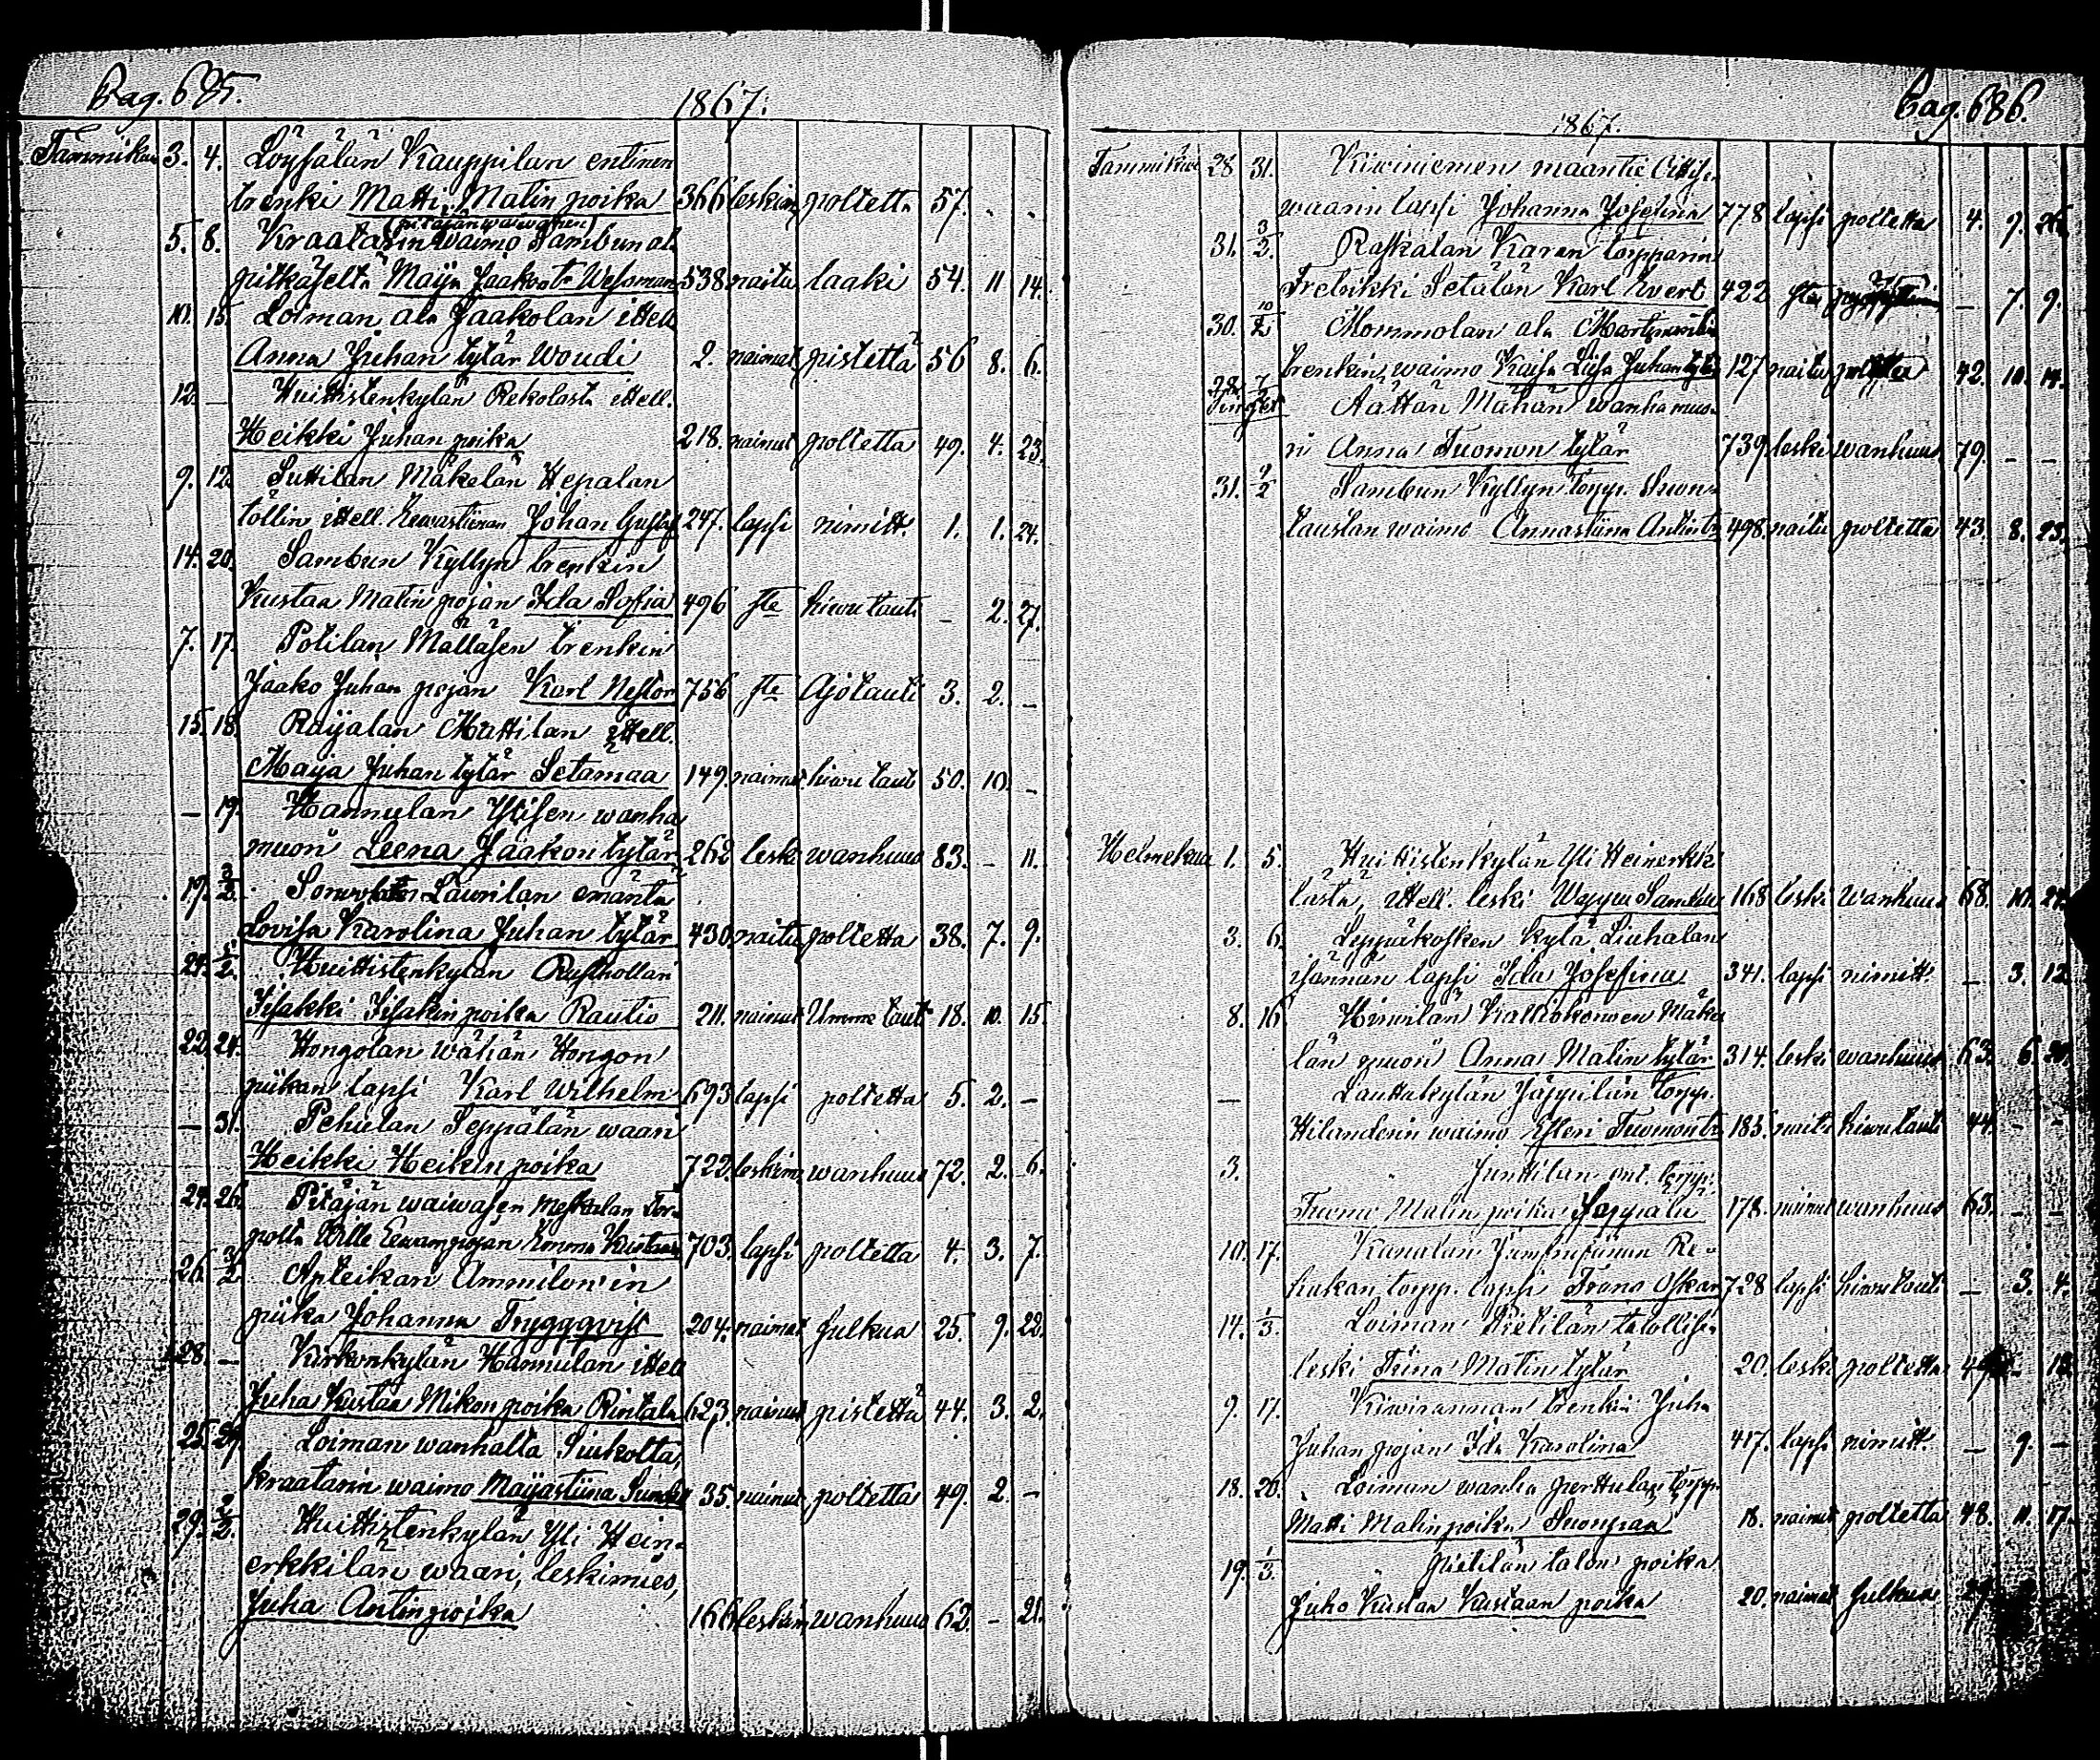 Pag. 685.
1867.
Tammikuu 3. 4. Löysälän Kauppilan entinen
trenki Matti Matin poika 366 leskim poltetta 57. - -
(pitäjän waiwasen)
5. 8. Kraatarin waimo Sambun ala
pitkäselt Maija Jaakost. Wessman 538 naitu laaki 54. 11 14.
10. 15. Loiman ala Jaakolan ittell.
Anna Juhan tytär Woudi 2. naimat. pistettä 56 8. 6.
12. — Huittistenkylän Rekolast ittell.
Heikki Juhan poika 218. naimat poltetta 49. 4. 23.
9. 12. Suttilan Mäkelän Hepalan
töllin ittell. Eewastiinan Johan Gustaf 247. lapsi nimitt. 1. 1. 24.
14. 20. Sambun Kyllyn trenkin
Kustaa Matin pojan Ida Sofia 496 ste hiwutauti - 2. 27.
7. 17. Potilan Mälläsen trenkin
Jaako Juhan pojan Karl Nestor 756 ste Ajotauti 3. 2. -
15. 18. Raijalan Mattilan ittell.
Maija Juhan tytär Setamaa 149. naimat. hiwutaut 50. 10. -
— 19. Hannulan Ylisen wanha
muori Leena Jaakon tytär 262 leski wanhuus 83. - 11.
19. 3/2. Laurilan emäntä
Lovisa Karolina Juhan tytär 430 naitu poltetta 38. 7. 9.
21. 1/2. Huittistenkylän Rusthollari
Iisakki Iisakin poika Rautio 211. naimat Umme taut 18. 10. 15.
22. 24. Hongolan wähän Hongon
piikan lapsi Karl Wilhelm 693 lapsi poltetta 5. 2. -
— 31. Pehulan Seppälän waari
Heikki Heikin poika 722. leskim wanhuus 72. 2. 6.
24. 26. Pitäjän waiwasen Meskalan tor-
polta Wille Eewanpojan Emma Kustaawa 703. lapsi poltetta 4. 3. 7.
26. 3/2 Apteikan Ammilon'in
piika Johanna Tryggqvist 204. naimat Julkua 25. 9. 22.
28. — Kirkonkylän Hannulan ittell
Juha Kustaa Mikon poika Rintala 623. naimat pistettä 44. 3. 2.
25. 29. Loiman wanhalta Siukolta,
kraatarin waimo Maijastiina 35. naimat poltetta 49. 2. -
29. 3/2. Huittistenkylän Yli Hein-
erkkilän waari, leskimies,
Juha Antin poika 166 leskim wanhuus 62. - 21.
Pag. 686.
1867.
Tammikuu 28 31. Kiwiniemen maantie
waarin lapsi Johanna Josefiina 778 lapsi poltetta 4. 9. 26.
31. 3/2. Raskalan Karen torpparin
Fretrikki Setälän Karl Evert 422 ste — 7. 9.
30. 10/2 Mommolan ala
trenkin waimo Kaisa Liisa Juhan tytär 127 naitu 42. 10. 14.
Aättän Mähän wanha muo-
ri Anna Tuomon tytär 739. leski wanhuus 79. - -
31. 9/2 Sambun Kyllyn torpp. Suon-
taustan waimo Annastiina Antint. 498. naitu poltetta 43. 8. 23.
Helmekuu 1. 5. Huittistenkylän Yli Heinerkki-
lästä, ittell. leski Wappu 168 leski wanhuus 68. 10. 27.
3. 6. Leppäkosken kylä Liuhalan
isännän lapsi Ida Josefiina 341. lapsi nimitt. - 3. 12
8. 16 Kalliokonwen Mäke-
län muori Anna Matin tytär 314. leski wanhuus 63. 6.
— Lauttakylän Jäppilän torpp.
Hilanderin waimo Esteri Tuomontr 185. naitu hiwutauti 44. - -
3. Junttilan ent. torpp.
Tuomo Matin poika 178. naimat wanhuus 63. - -
10. 17. Kanalan Re-
kukan torpp. lapsi Frans Oskar 728 lapsi hiwutauti - 3. 4.
14. 1/3. Loiman Pietilän talollisen
leski Tiina Matin tytär 20. leski poltetta 18
9. 17. Kiwirannan trenkin Juha
Juhan pojan Ida Karolina 417. lapsi nimitt. - 9. -
18. 20. Loiman wanha Perttulan torpp.
Matti Matin poika Suonpää 18. naimat poltetta 48. 11. 17.
19. 1/3. Pietilän talon poika
Juho Kustaa Kustaan poika 20. naimat Julkua